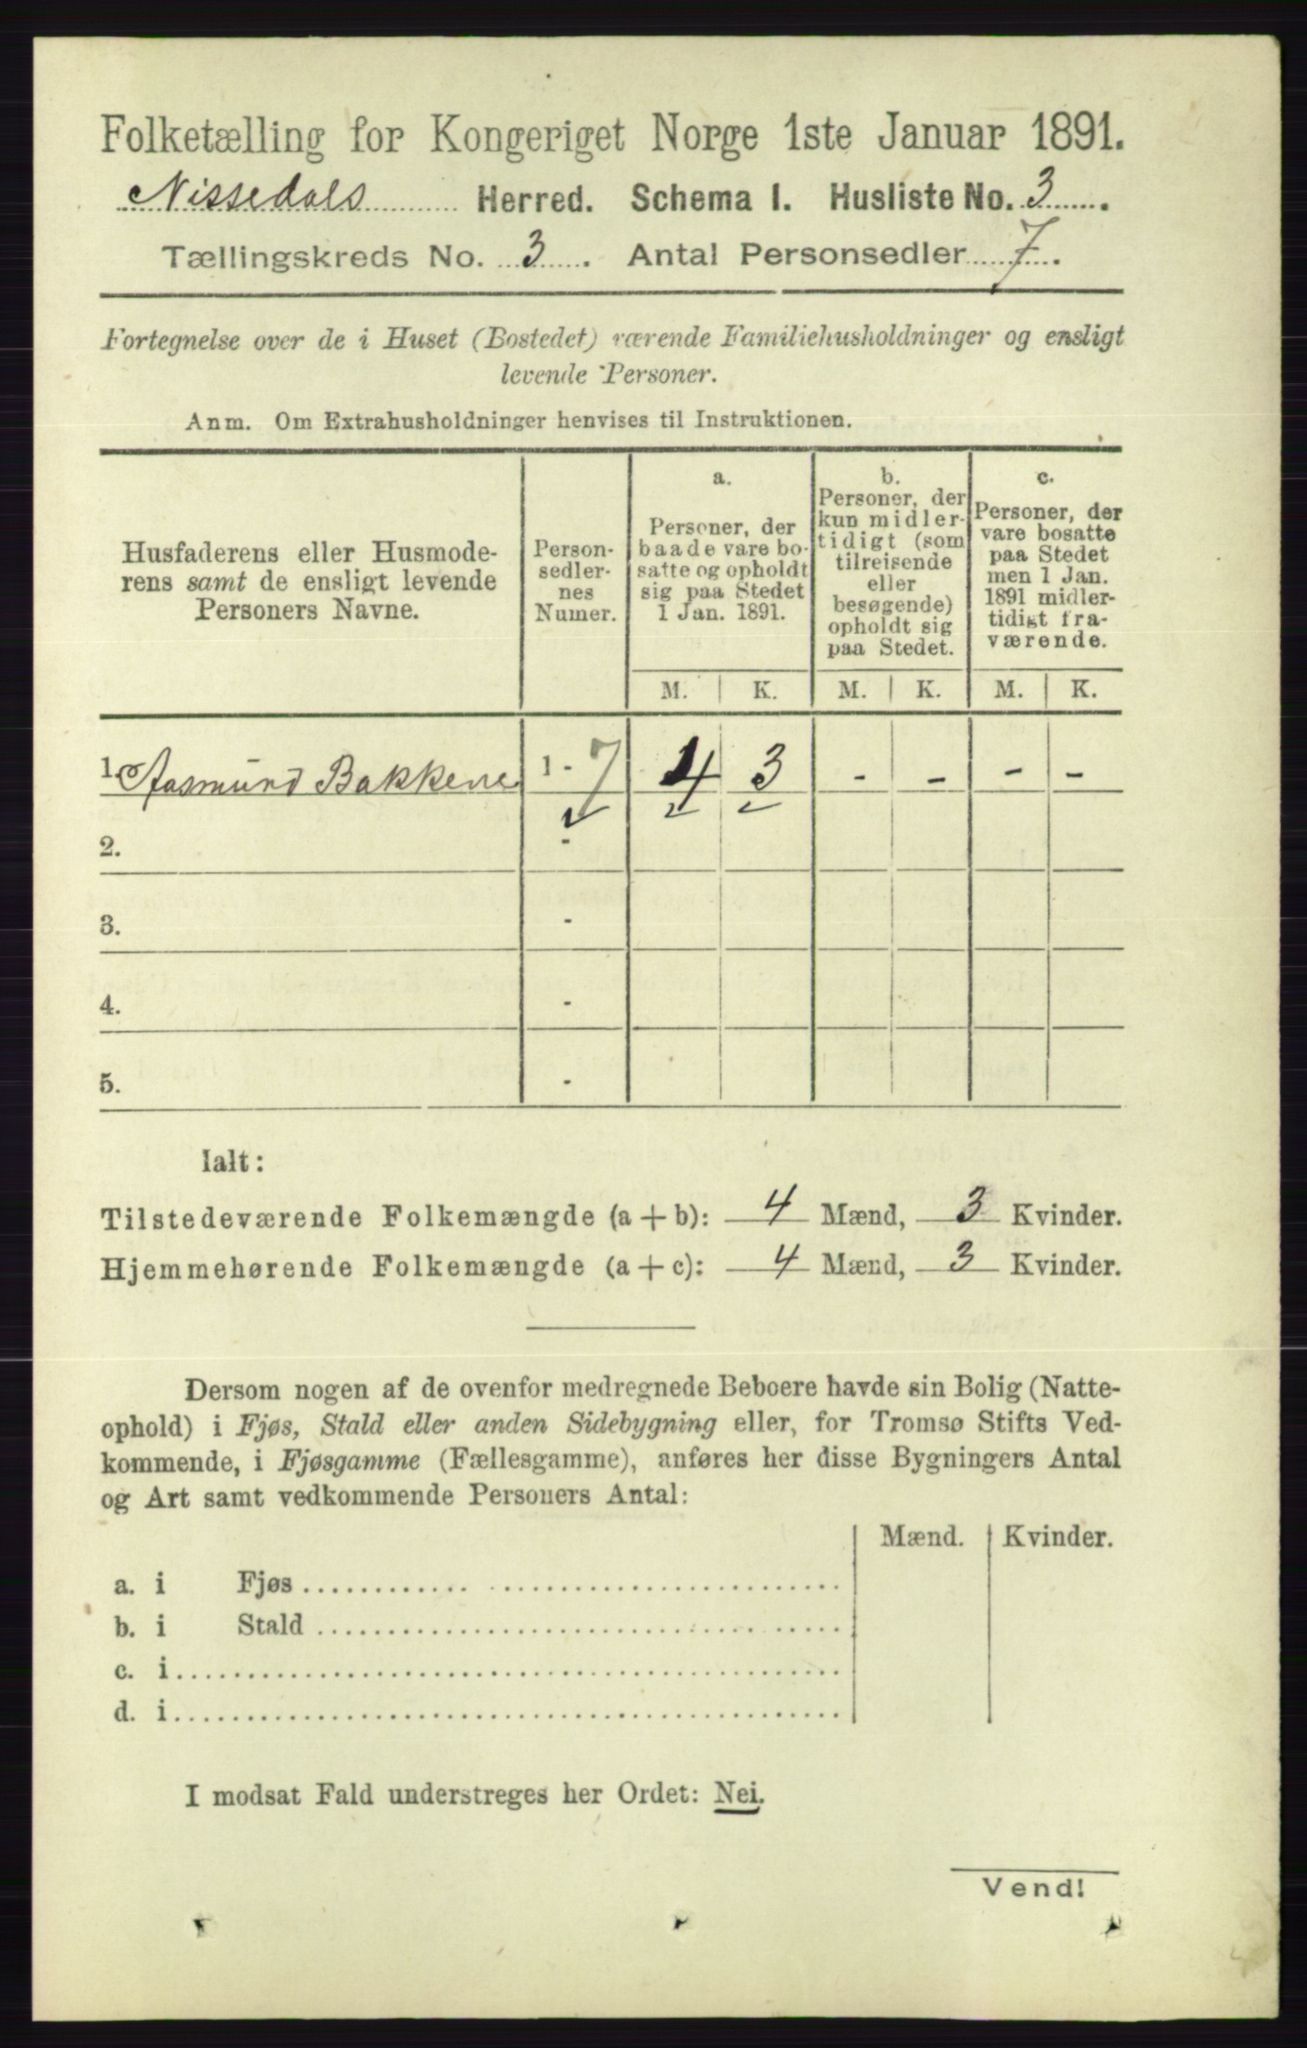 Folketælling for Kongeriget Norge 1ste Januar 1891.
Nissedals Herred. Schema I. Husliste No. 3.
Tællingskreds No. 3. Antal Personsedler 7.
Fortegnelse over de i Huset (Bostedet) værende Familiehusholdninger og ensligt
levende Personer.
Anm. Om Extrahusholdninger henvises til Instruktionen.
Husfaderens eller Husmode-
rens samt de ensligt levende
Personers Navne.
Person-
sedler-
nes
Numer.
a.
Personer, der
baade vare bo-
satte og opholdt
sig paa Stedet
1 Jan. 1891.
b.
Personer, der
kun midler-
tidigt (som
tilreisende
eller
besøgende)
opholdt sig
paa Stedet.
c.
Personer, der
vare bosatte
paa Stedet
men 1 Jan.
1891 midler-
tidigt fra-
værende.
M. K. M. K. M. K.
1. Aasmund Bakkene 1 - 7 4 3 - - - -
2. -
3. -
4. -
5. -
Ialt:
Tilstedeværende Folkemængde (a + b): 4 Mænd, 3 Kvinder.
Hjemmehørende Folkemængde (a + c): 4 Mænd, 3 Kvinder.
Dersom nogen af de ovenfor medregnede Beboere havde sin Bolig (Natte-
ophold) i Fjøs, Stald eller anden Sidebygning eller, for Tromsø Stifts Ved-
kommende, i Fjøsgamme (Fællesgamme), anføres her disse Bygningers Antal
og Art samt vedkommende Personers Antal:
Mænd. Kvinder.
a. i Fjøs
b. i Stald
c. i
d. i
I modsat Fald understreges her Ordet: Nei.
Vend!